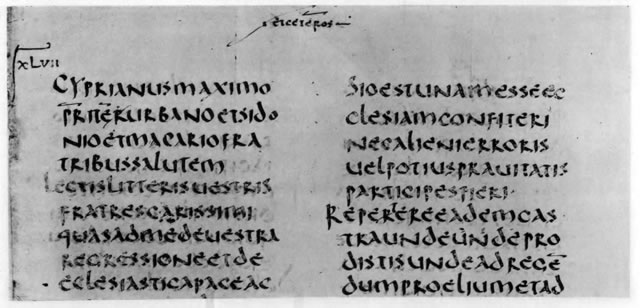 etceteros
XLVII
CYPRIANUSMAXIMO
URBANOETSIDO
NIOETMACARIOFRA
TRIBUSSALUTEM
LECTISLITTERISUESTRIS
FRATRESCARISSIMI
QUASADMEDEUESTRA
REGRESSIONEETDE
ECLESIASTICAPACEAC
SICESTUNAMESSEEC
CLESIAMCONFITERI
NECALIENIERRORIS
UELPOTIUSPRAUITATIS
PARTICIPESFIERI·
REPETEREEADEMCAS
TRAUNDEUNDEPRO
DISTISUNDEADREGĒ
DUMPROELIUMETAD